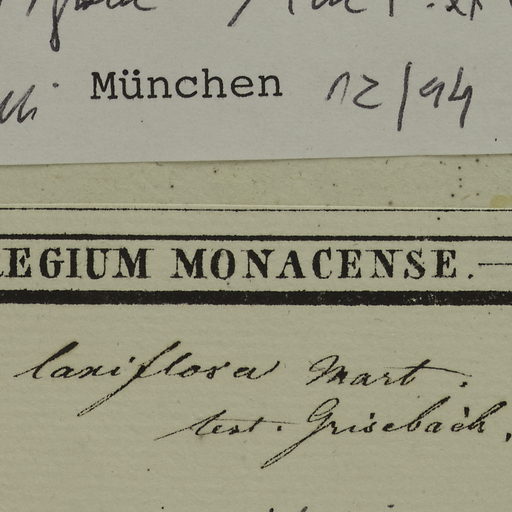 München 12/94
REGIUM MONACENSE.
laxiflora Mart.
test. Grisebach.